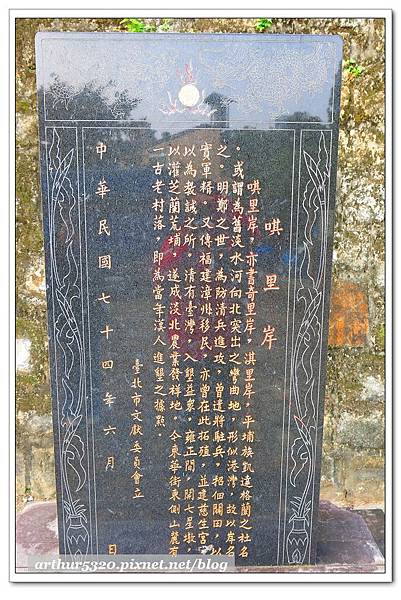 arthur5320.pixnet.net/blog
唭里岸
唭里岸，亦書奇里岸，淇里岸，平埔族凱達格蘭之社名
。或謂為舊淡水河向北突出之彎曲地，形似港灣，故以岸名
之。明鄭之世，為防清兵進攻，曾遣將駐兵，招佃開田，以
實軍糈。又傳福建漳州移民，亦曾在此拓殖，並建慈生宮，
以為教誡之所。清有臺灣，入墾益眾，雍正間，開七星墩，
以灌芝蘭荒埔，遂成淡北農業發祥地。今東華街東側山麓有
一古老村落，即為當年漢人進墾之據點。
臺北市文獻委員會立
中華民國七十四年六月　日
arthur5320.pixnet.net/blog